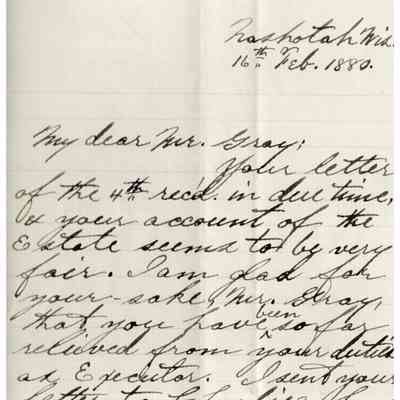 Nashotah Wis.
16th Feb. 1880.
My dear Mr. Gray;
Your letter
of the 4th rec'd. in due time,
& your account of the
Estate seems to be very
fair. I am glad for
your sake, Mr. Gray,
that you have been so far
relieved from your duties
as Executor. I sent your
letter to